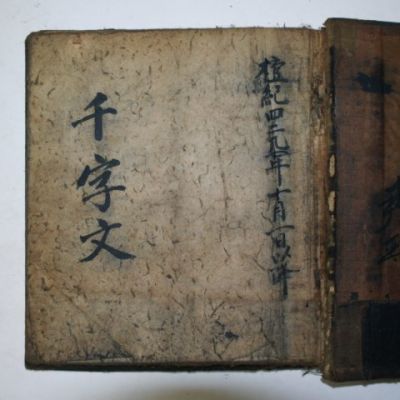 檀紀四二年十月一日以降
千字文